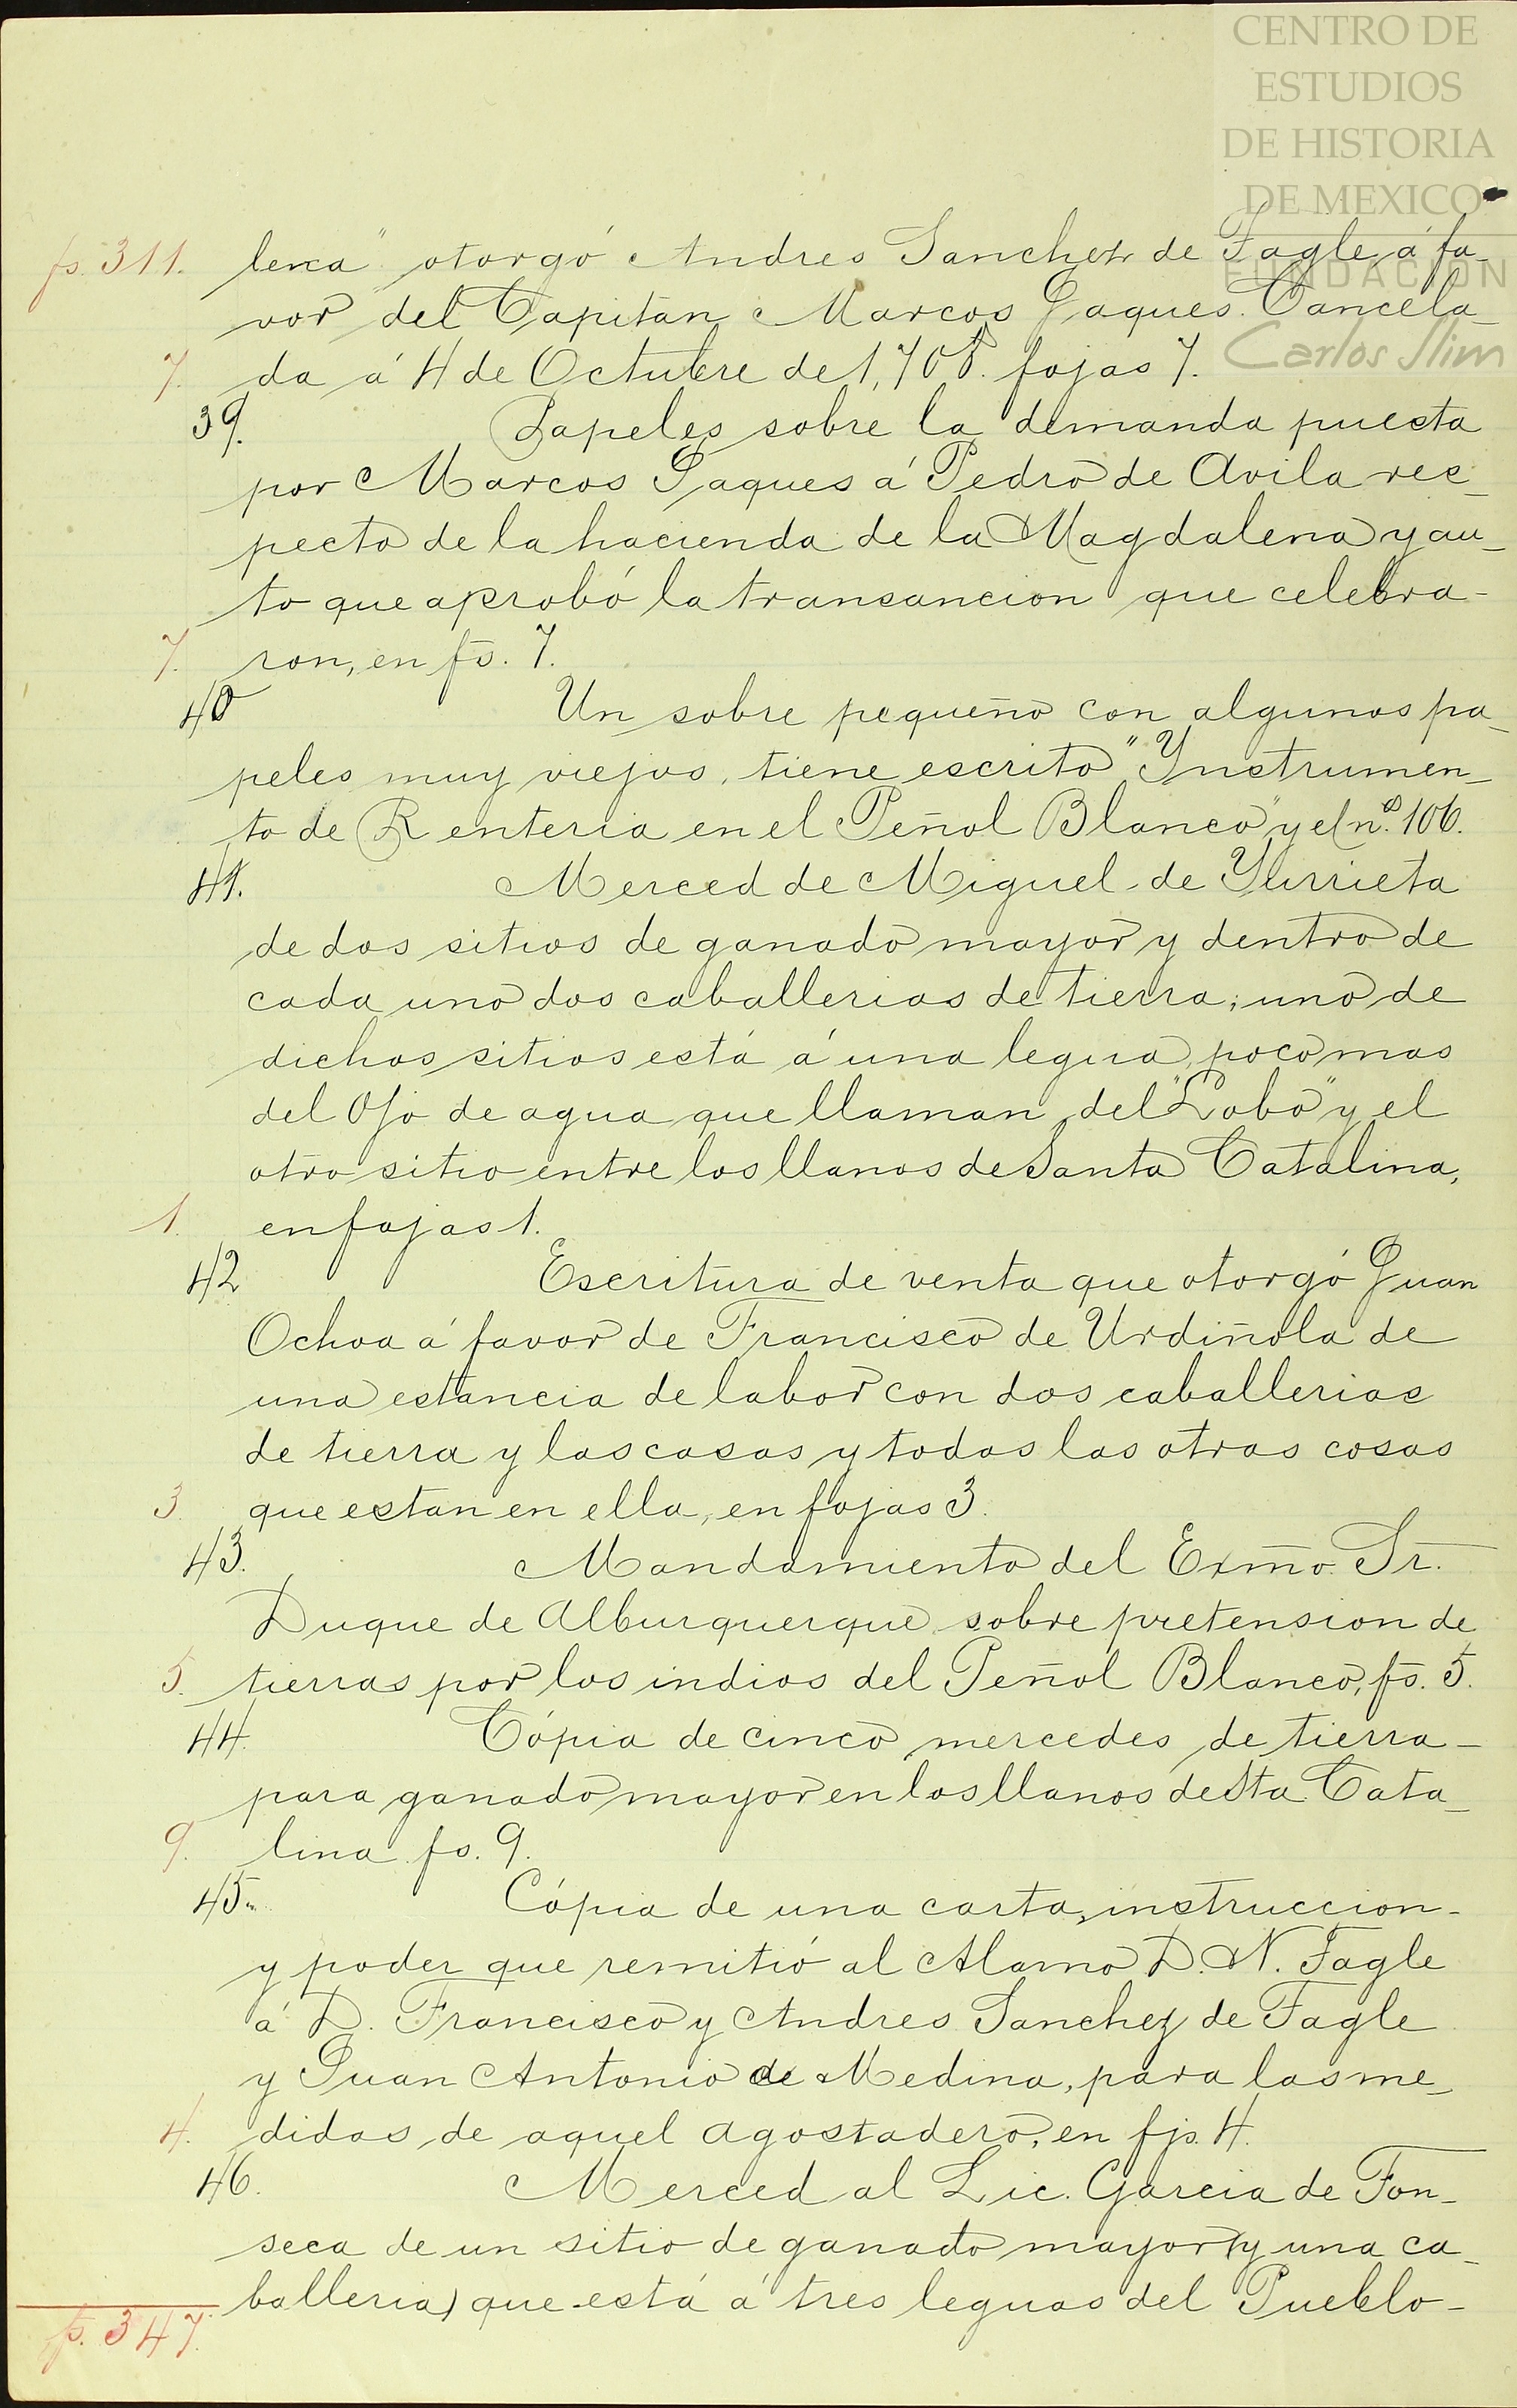 CENTRO DE
ESTUDIOS
DE HISTORIA
DE MEXICO
FUNDACIÓN
Carlos Slim
fs. 311. lena" otorgó Andres Sanchez de Tagle á fa-
vor del Capitán Marcos Jaques. Cancela-
7. da á 4 de Octubre de 1,708. fojas 7.
39. Papeles sobre la demanda puesta
por Marcos Jaques á Pedro de Avila res-
pecto de la hacienda de la Magdalena y au-
to que aprobó la transancion que celebra-
7. ron, en fs. 7.
40 Un sobre pequeño con algunos pa-
peles muy viejos, tiene escrito "Ynstrumen-
to de Renteria en el Peñol Blanco" y el n.º 106.
41. Merced de Miguel de Yurrieta
de dos sitios de ganado mayor y dentro de
cada uno dos caballerias de tierra; uno de
dichos sitios está á una legua poco mas
del Ojo de agua que llaman del "Lobo" y el
otro sitio entre los llanos de Santa Catalina,
1. en fojas 1.
42 Escritura de venta que otorgó Juan
Ochoa á favor de Francisco de Urdiñola de
una estancia de labor con dos caballerias
de tierra y las casas y todas las otras cosas
3 que estan en ella, en fojas 3.
43. Mandamiento del Exmo. Sr.
Duque de Alburquerque sobre pretension de
5. tierras por los indios del Peñol Blanco, fs. 5.
44. Cópia de cinco mercedes de tierra-
para ganado mayor en los llanos de Sta. Cata-
9. lina fs. 9.
45. Cópia de una carta, instruccion-
y poder que remitió al Alamo D. N. Tagle
á D. Francisco y Andres Sanchez de Tagle
y Juan Antonio de Medina, para las me-
4. didas de aquel agostadero, en fjs. 4.
46. Merced al Lic. Garcia de Fon-
seca de un sitio de ganado mayor (y una ca-
balleria) que está á tres leguas del Pueblo-
fs. 347.